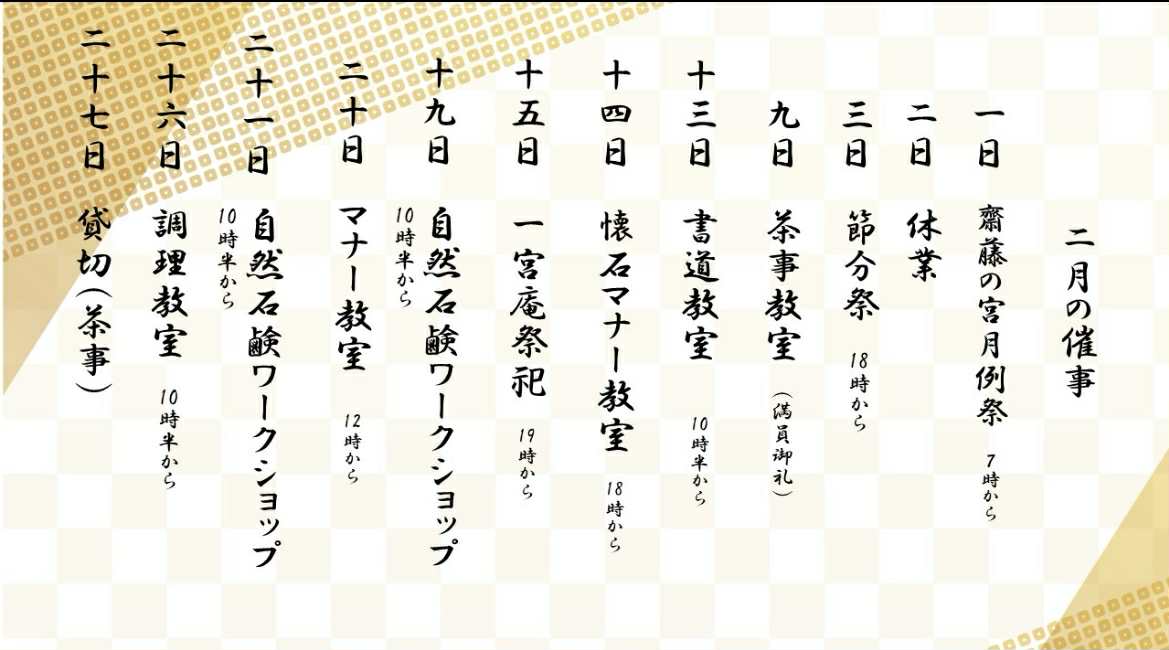 二月の催事
一日 齋藤の宮月例祭 7時から
二日 休業
三日 節分祭 18時から
九日 茶事教室 (満員御礼)
十三日 書道教室 10時半から
十四日 懐石マナー教室 18時から
十五日 一宮庵祭祀 19時から
十九日 自然石鹸ワークショップ
10時半から
二十日 マナー教室 12時から
二十一日 自然石鹸ワークショップ
10時半から
二十六日 調理教室 10時半から
二十七日 貸切(茶事)